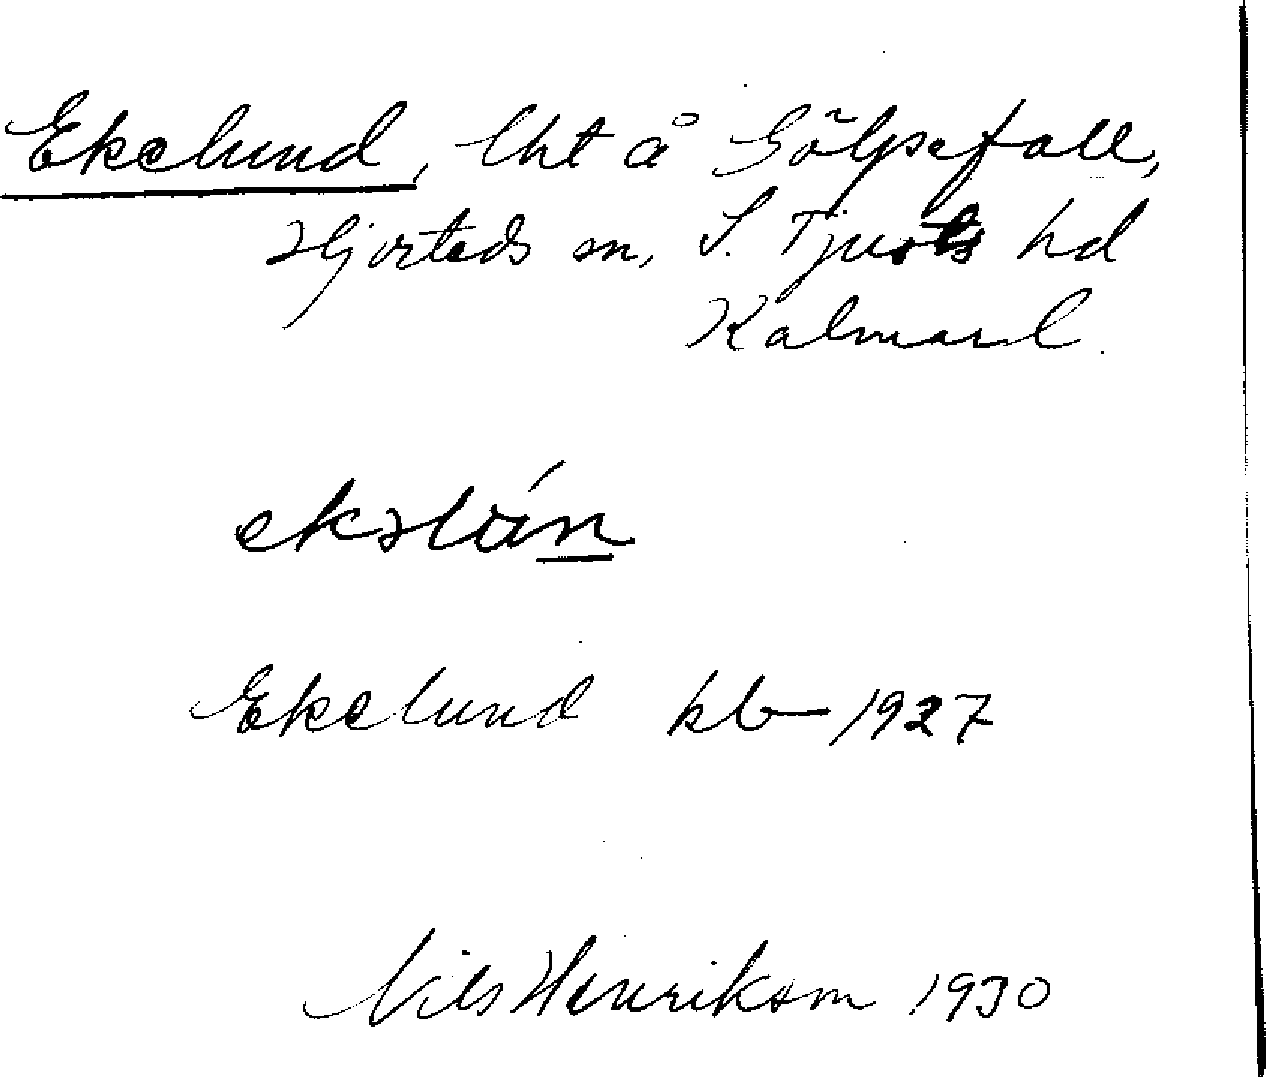 Ekelund, lht å Gölpsefall,
Hjorteds sn, S. Tjusts hd
Kalmarl.
ekəlún
Ekelund kb 1927
Nils Henrikson 1930